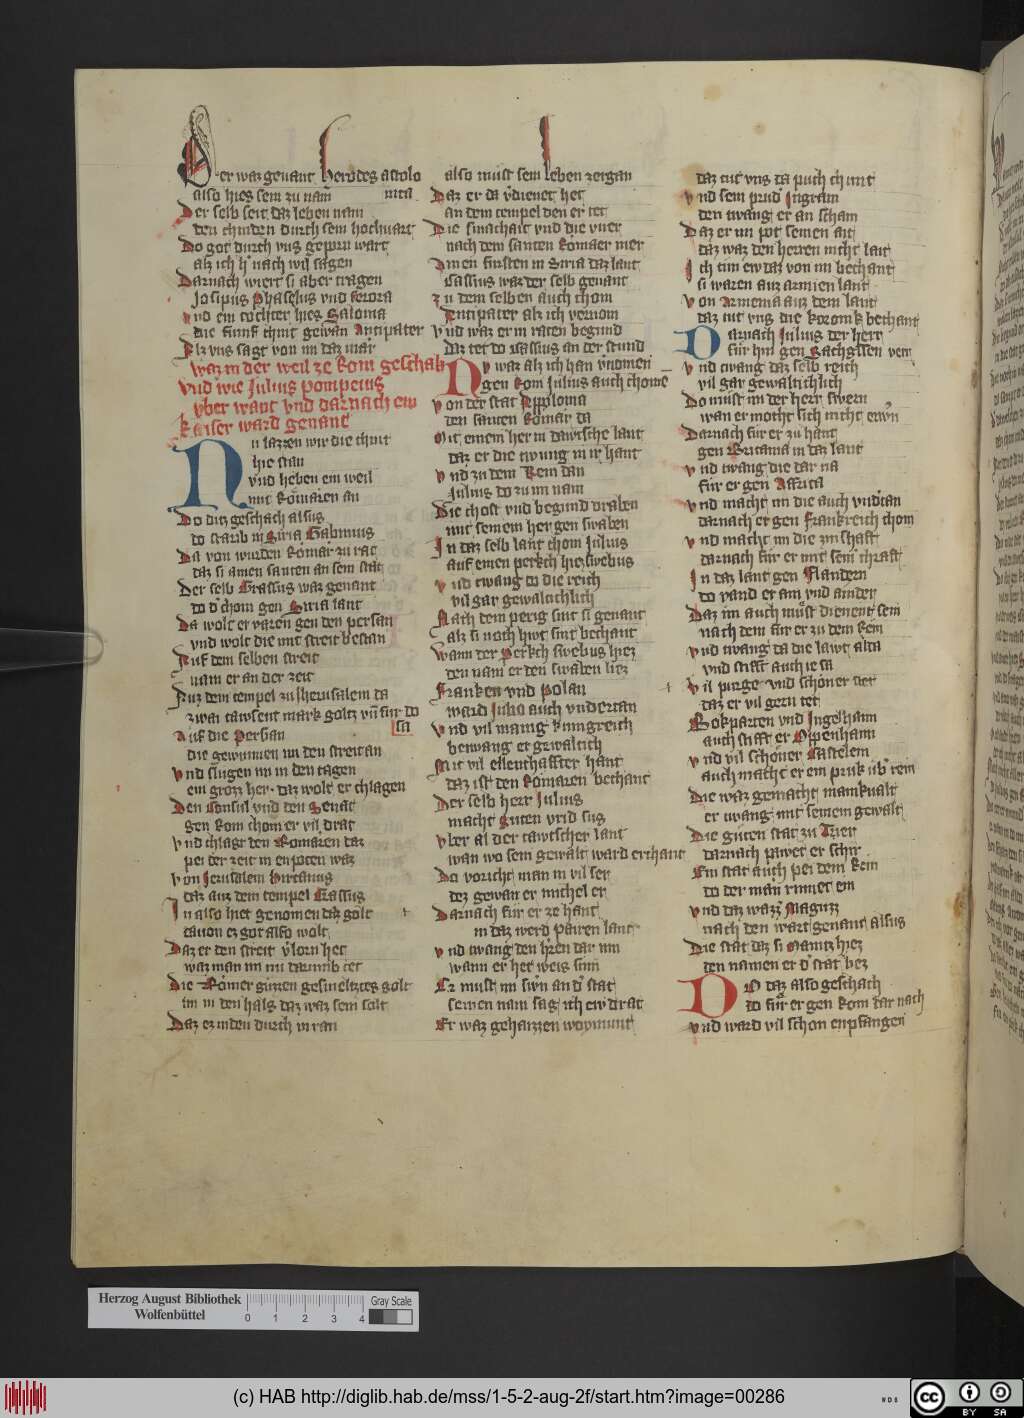 Der waz genant Herodes ascolo
nita
also hies sein zu nam
Der selb seit daz leben nam
den chinden durch sein hochuart
Do got durch vns geporn wart
alz ich h' nach wil sagen
Darnach wiert si aber tragen
Josipus Phaselus vnd ferora
vnd ein tochter hies Saloma
die funf chint gewan Antipater
Alz vns sagt von im daz mar
waz in der weil ze Rom geschah
Vnd wie Julius pompeius
vber want vnd darnach ein
kaiser ward genant
Nu lazzen wir die chint
hie stan
vnd heben ein weil
mit Romaren an
Do ditz geschach alsus
do starib in Siria Gabinius
Da von wurden Romar zu rat
daz si ainen santen an sein stat
Der selb Crassus waz genant
do d' chom gen Siria lant
Da wolt er varen gen den persan
vnd wolt die mit streit bestan
Auf dem selben streit
nam er an der zeit
Auz dem tempel zu Jherusalem da
zwai tawsent mark goltz vn fur do
sa
Auf die Persan
die gewunnen im den streit an
vnd slugen im in den tagen
ein grozz her daz wolt er chlagen
Den Consul vnd den Senat
gen Rom chom er vil drat
vnd chlagt den Romaren daz
pei der zeit in enpoten waz
von Jerusalem hircanus
daz auz dem tempel Crassus
In also hiet genomen daz golt
dauon ez got also wolt
Daz er den streit v'lorn het
waz man im mi darumb tet
Die Romer guzzen gesmeltztes golt
im in den hals daz waz sein solt
Daz ez in den durch in ran
also must sein leben zergan
Daz er da v'dienet het
an dem tempel den er tet
Die smachait vnd die vner
nach dem santen Romaer mer
Ainen fursten in Siria daz lant
Cassius waz der selb genant
zu dem selben auch chom
Antipater alz ich vernom
vnd waz er in raten begund
Daz tet do Cassius an der stund
Nv waz alz ich han vnomen
gen Rom Julius auch chomen
von der stat Appoloma
den santen Romar da
Mit einem her in dawtsche lant
daz er die twung in ir hant
vnd zu dem Rein dan
Julius do zu im nam
Die chost vnd begund draben
mit seinem her gen swaben
In daz selb lant chom Julius
auf einen perkch hiez swebus
vnd twang do die reich
vil gar gewaltichlich
Nach dem perig sint si genant
alz si noch hiwt sint bechant
wann der Perkch swebus hiez
den nam er den swaben liez
Franken vnd Polan
ward Julio auch vndertan
vnd vil manig kunigreich
betwang er gewaltich
Mit vil ellenthaffter hant
daz ist den Romaren bechant
Der selb herr Julius
macht Luten vnd sus
vber al der tawtscher lant
wan wo sein gewalt ward erchant
Do voricht man in vil ser
dez gewan er michel er
Darnach fur er ze hant
in daz werd Pairen lant
vnd twang den h'ren dar inn
wann er het weis sinn
Er must im sw'n an d' stat
seinen nam sag ich ew drat
Er waz gehaizzen woymunt
daz tut vns da puch chunt
vnd sein prud' Ingram
den twang er an scham
Daz er im pot seinen ait
daz waz den herren nicht lait
Ich tun ew daz von im bechant
si waren auz armien lant
von Armenia auz dem lant
daz tut vns die koronik bechant
Darnach Julius der herr
fur hin gen Sachssen verr
vnd twang daz selb reich
vil gar gewaltichlich
Do must im der herr swern
wan er mocht sich nicht erw'n
Darnach fur er zu hant
gen Britania in daz lant
vnd twang die dar na
fur er gen Affrica
vnd macht im die auch vnd'tan
darnach er gen Frankreich chom
vnd macht im die zinshaft
darnach fur er mit sein chraft
In daz lant gen Flandern
do vand er ain vnd ainder
Daz im auch must dienent sein
nach dem fur er zu dem Rein
vnd twang da die lawt alda
vnd stifft auch ie sa
vil purge vnd schoner stet
daz er vil gern tet
Bokparten vnd Ingelhaim
auch stifft er Oppenhaim
vnd vil schoner Castelein
auch macht er ein pruk vb' rein
Die waz gemacht manikualt
er twang mit seinem gewalt
Die guten stat zu Trier
darnach pawet er schir
Ein stat auch pei dem Rein
do der man rinnet ein
vnd daz wazz' Maguzz
nach den wart genant alsus
Die stat daz si Maintz hiez
den namen er d' stat liez
Do daz also geschach
do fur er gen Rom dar nach
vnd ward vil schon enpfangen
Herzog August Bibliothek
Wolfenbüttel
0 1 2 3 4
Gray Scale
(c) HAB http://diglib.hab.de/mss/1-5-2-aug-2f/start.htm?image=00286
WDB
cc
BY SA